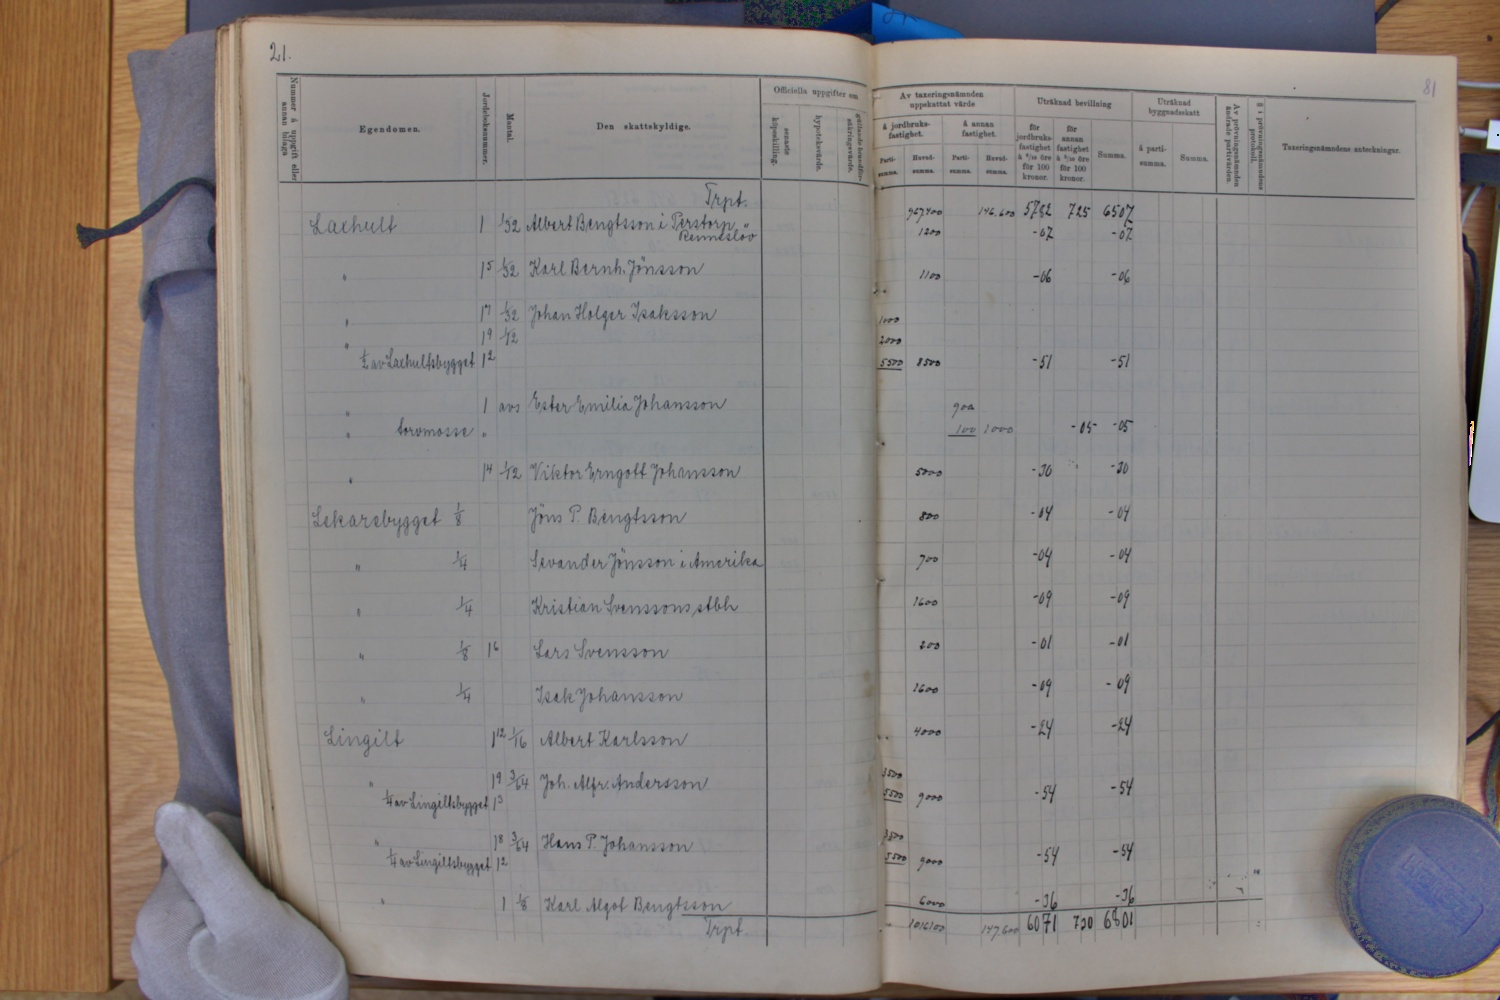 21.
81
Nummer å uppgift eller annan bilaga
Egendomen.
Jordeboksnummer.
Mantal.
Den skattskyldige.
Officiella uppgifter om
senaste köpeskilling.
hypoteksvärde.
gällande brandförsäkringsvärde.
Av taxeringsnämnden uppskattat värde
å jordbruksfastighet.
å annan fastighet.
Partisumma.
Huvudsumma.
Partisumma.
Huvudsumma.
Uträknad bevillning
för jordbruksfastighet å 6/10 öre för 100 kronor.
för annan fastighet å 5/10 öre för 100 kronor.
Summa.
Uträknad byggnadsskatt
å partisumma.
Summa.
Av prövningsnämnden ändrade partivärden.
§ i prövningsnämndens protokoll.
Taxeringsnämndens anteckningar.
Trpt. 967.400 146.600 5782 725 6507
Laxhult 1 1/32 Albert Bengtsson i Perstorp, Renneslöv 1200 -07 -07
" 1⁵ 1/32 Karl Bernh. Jönsson 1100 -06 -06
" 1⁷ 1/32 Johan Holger Isaksson 1000
" 1⁹ 1/12 2000
½ av Laxhultsbygget 1² 5500 8500 -51 -51
" 1 avs Ester Emilia Johansson 900
" torvmosse " 100 1000 -05 -05
" 1⁴ 1/12 Viktor Erngott Johansson 5000 -30 -30
Lekarsbygget 1/8 Jöns P. Bengtsson 800 -04 -04
" 1/4 Sevander Jönsson i Amerika 700 -04 -04
" 1/4 Kristian Svenssons stbh 1600 -09 -09
" 1/8 1⁶ Lars Svensson 200 -01 -01
" 1/4 Isak Johansson 1600 -09 -09
Lingilt 1¹² 1/16 Albert Karlsson 4000 -24 -24
" 1⁹ 3/64 Joh. Alfr. Andersson 3500
1/4 av Lingiltsbygget 1³ 5500 9000 -54 -54
" 1⁸ 3/64 Hans P. Johansson 3500
1/4 av Lingiltsbygget 1² 5500 9000 -54 -54
" 1 1/8 Karl Algot Bengtsson 6000 -36 -36
Trpt. 1016100 147.600 6071 730 6801